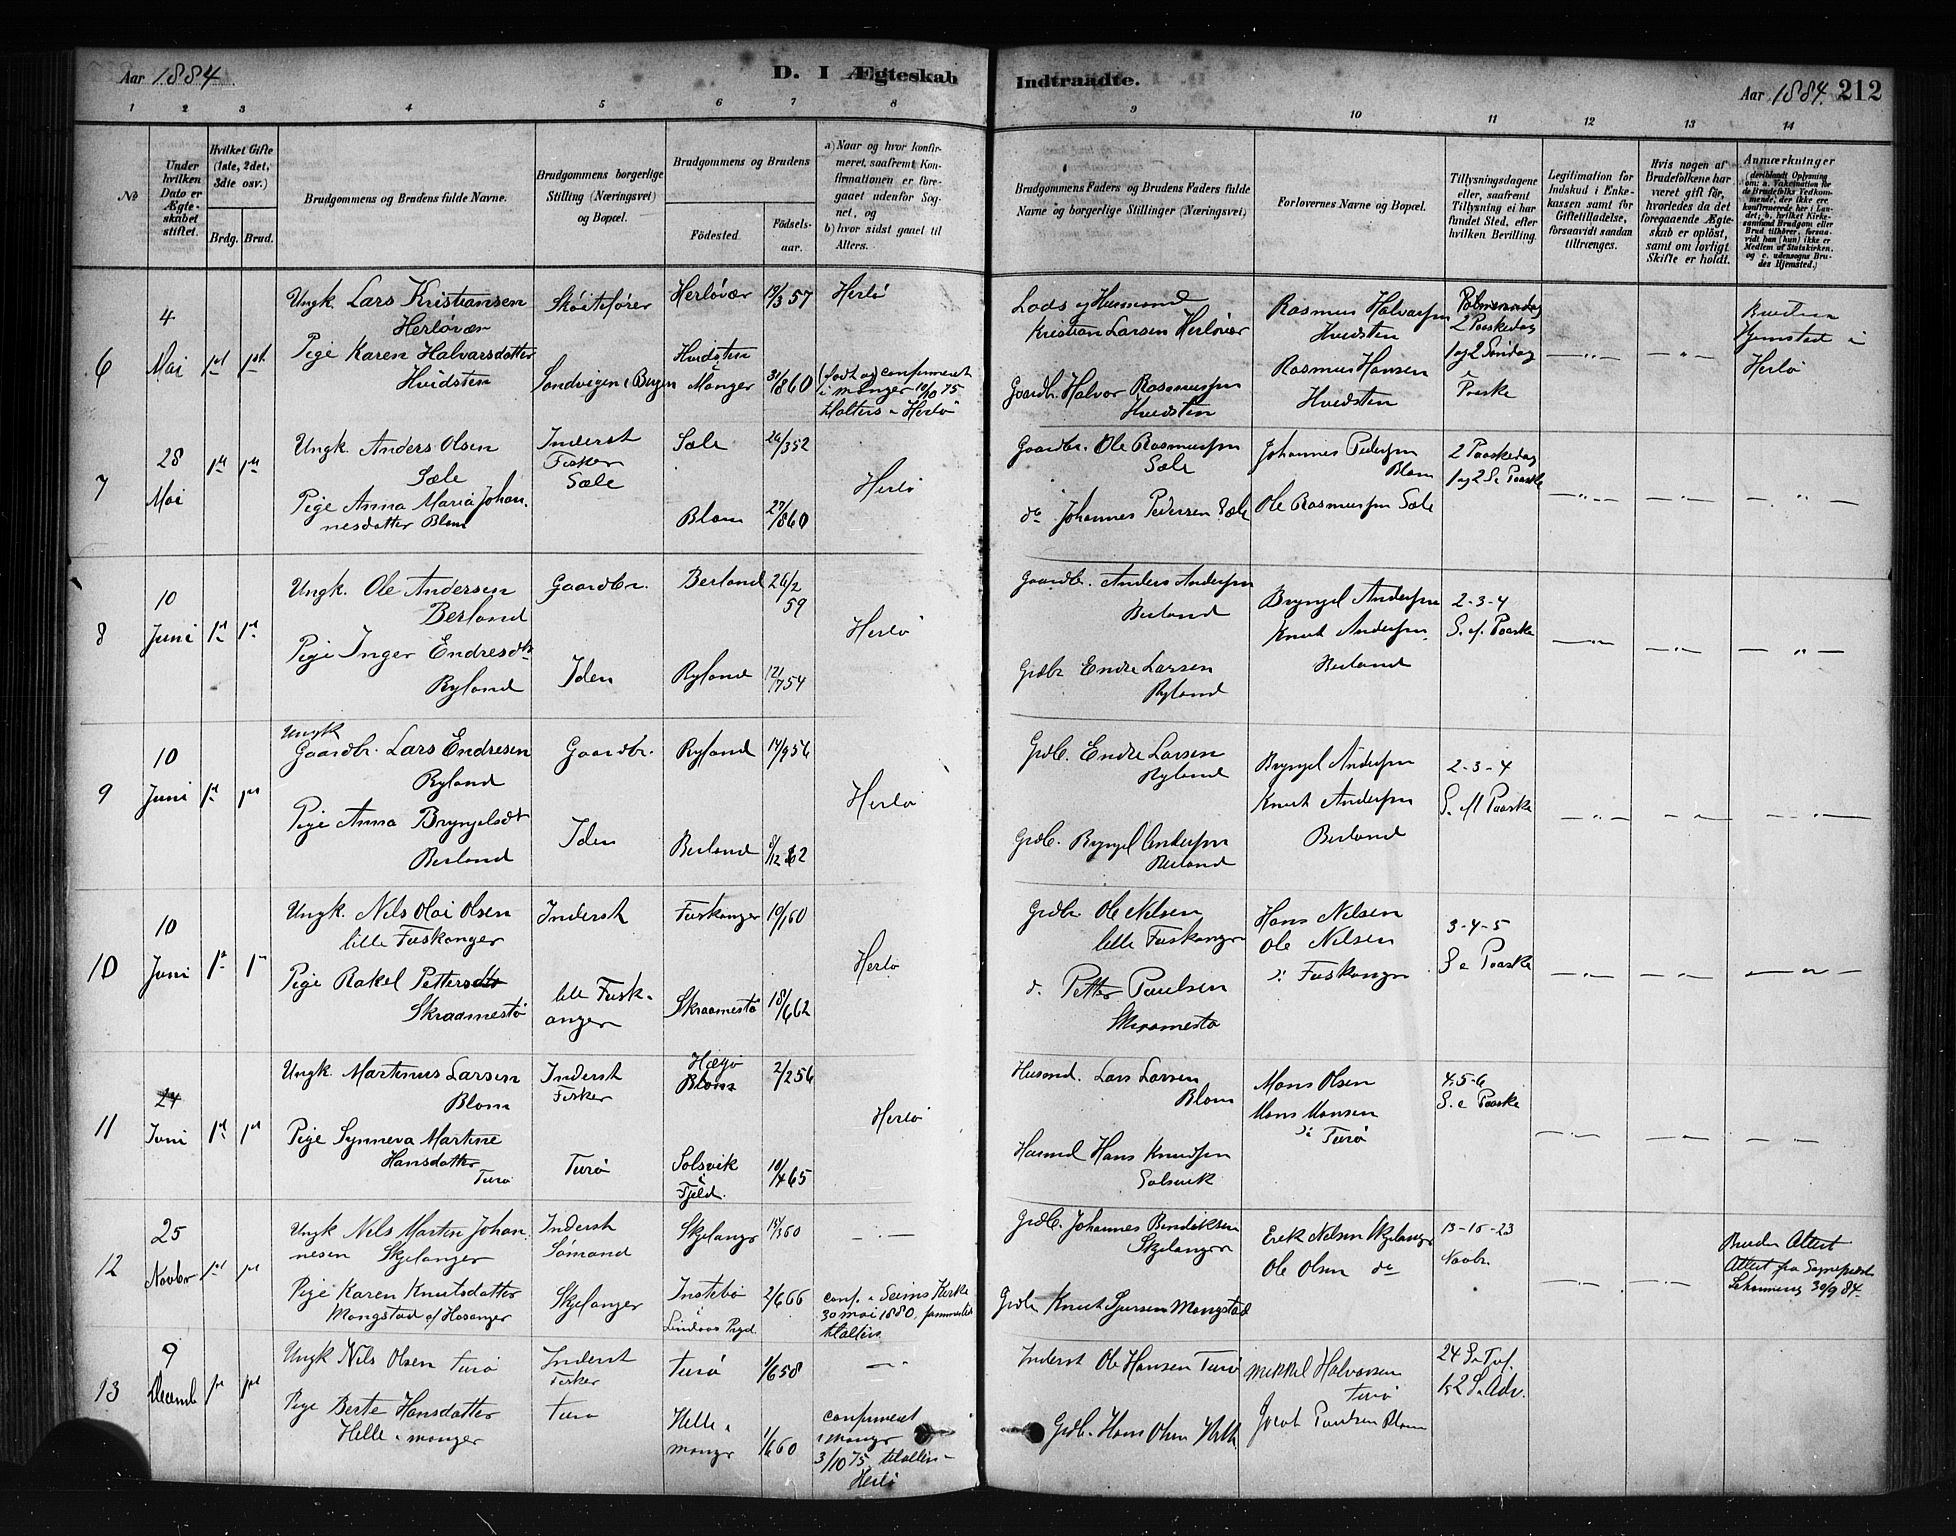 Aar 1884
D. I Ægteskab
Indtraadte.
Aar 1884.
212
1 2 3 4 5 6 7 8 9 10 11 12 13 14
No
Under hvilken Dato er Ægteskabet stiftet.
Hvilket Gifte (1ste, 2det, 3die osv.)
Brdg. Brud.
Brudgommens og Brudens fulde Navne.
Brudgommens borgerlige Stilling (Næringsvei) og Bopæl.
Brudgommens og Brudens
Fødested.
Fødselsaar.
a) Naar og hvor konfirmeret, saafremt Konfirmationen er foregaaet udenfor Sognet, og
b) hvor sidst gaaet til Alters.
Brudgommens Faders og Brudens Faders fulde Navne og borgerlige Stillinger (Næringsvei)
Forlovernes Navne og Bopæl.
Tillysningsdagene eller, saafremt Tillysning ei har fundet Sted, efter hvilken Bevilling.
Legitimation for Indskud i Enkekassen samt for Giftetilladelse, forsaavidt saadan tiltrænges.
Hvis nogen af Brudefolkene har været gift før, hvorledes da det foregaaende Ægteskab er opløst, samt om lovligt Skifte er holdt.
Anmærkninger (deriblandt Oplysning om: a. Vakcination for de Brudefolks Vedkommende, der ikke ere konfirmerede her i Landet; b. hvilket Kirkesamfund Brudgom eller Brud tilhører, forsaavidt han (hun) ikke er Medlem af Statskirken, og c. udensogns Brudes Hjemsted.)
6
4
Mai
1st
1st
Ungk. Lars Kristiansen
Herløvær
Pige Karen Halvarsdatter
Hvidsten
Skøitefører
Sandvigen i Bergen
Herløvær
19/3 57
Hvidsten
Manger
31/8 60
Herlø
(født og confirmeret
i Manger 10/10 75
tilalters i Herlø
Lods og Husmand
Kristian Larsen Herløvær
Gaardb. Halvor Rasmussen
Hvidsten
Rasmus Halvarsen
Hvidsten
Rasmus Hansen
Hvidsten
Palmesøndag
2 Paaskedag
1 og 2 Søndag
e
Paaske
Brudens
Hjemsted i
Herlø
7
28
Mai
1st
1st
Ungk. Anders Olsen
Sæle
Pige Anna Maria Johan
nesdatter Blom
Inderst
Fisker
Sæle
Sæle
26/3 52
Blom
27/8 60
Herlø
Gaardbr. Ole Rasmussen
Sæle
do Johannes Pedersen Sæle
Johannes Pedersen
Blom
Ole Rasmussen Sæle
2 Paaskedag
1 og 2 S. e Paaske
8
10
Juni
1st
1st
Ungk. Ole Andersen
Berland
Pige Inger Endresdtr
Ryland
Gaardbr.
Iden
Berland
26/2
59
Ryland
12/7 54
Herlø
Gaardb. Anders Andersen
Berland
Grdbr Endre Larsen
Ryland
Bryngel Andersen
Knut Andersen
Berland
2-3-4
S. ef. Paaske
9
10
Juni
1st
1st
Ungk
Gaardbr. Lars Endresen
Ryland
Pige Anna Bryngelsdt
Berland
Gaardbr.
Iden
Ryland
14/9 56
Berland
8/12 62
Herlø
Grdb. Endre Larsen
Ryland
Grdb. Bryngel Andersen
Berland
Bryngel Andersen
Knut Andersen
Berland
2-3-4
S. ef Paaske
10
10
Juni
1st
1st
Ungk. Nils Olai Olsen
lille Fuskanger
Pige Rakel Pettersdtr
Skraamestø
Inderst
lille Fusk-
anger
Fuskanger
19/1 60
Skraamestø
18/6 62
Herlø
Grdbr Ole Nilsen
lille Fuskanger
d. Petter Paulsen
Skramestø
Hans Nilsen
Ole Nilsen
Fuskanger
3-4-5
S e Paaske
11
24
Juni
1st
1st
Ungk. Martinus Larsen
Blom
Pige Synneva Martine
Hansdatter
Turø
Inderst
Fisker
Turø
Blom
2/2 56
Solsvik
i
Fjeld.
10/4 65
Herlø
Husmd. Lars Larsen
Blom
Husmd Hans Knudsen
Solsvik
Mons Olsen
Mons Monsen
Turø
4-5-6
S. e Paaske
12
25
Novbr
1st
1st
Ungk Nils Martin Johan
nesen Skjelanger
Pige Karen Knutsdatter
Mongstad af Hosanger
Inderst
Sømand
Skjelanger
Skjelanger
15/3 60
Instebø
i
Lindaas Prgd.
2/6 66
conf. i Seims Kirke
30 mai 1880.
tilalters
Grdb. Johannes Bendiksen
Skjelanger
Grdb Knut Sjursen Mongstad
Erik Nilsen Skjelanger
Ole Olsen do
13-16-23
Novbr.
Bruden Attest
Attest fra Sognepræst
30/9 84.
13
9
Decemb
1st
1st
Ungk Nils Olsen Turø
Pige Berte Hansdatter
Helle i manger
Inderst
Fisker
Turø
Turø
1/6 58
Helle i
mangr
1/6 60
confirmert
i mangr
3/10 75 tilalters i
Herlø
Inderst Ole Hansen Turø
Grdb. Hans Olsen Helle
Mikkel Halvorsen
Turø
Jacob Paulsen Blom
24 S e Tref.
1 & 2 S. Adv.